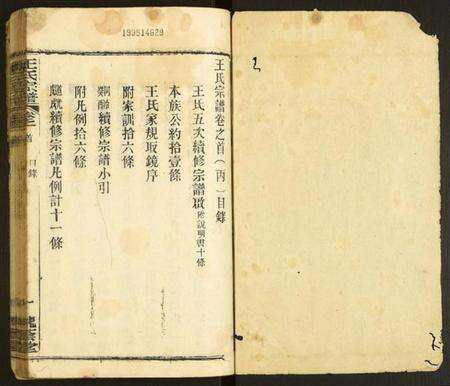 199514629
王氏宗譜卷之首（丙）目錄
王氏五次續修宗譜啟附說明書十條
本族公約拾壹條
王氏家規取鏡序
附家訓拾六條
續修宗譜小引
附凡例拾六條
續修宗譜凡例計十一條
王氏宗譜
卷之首
目錄
一